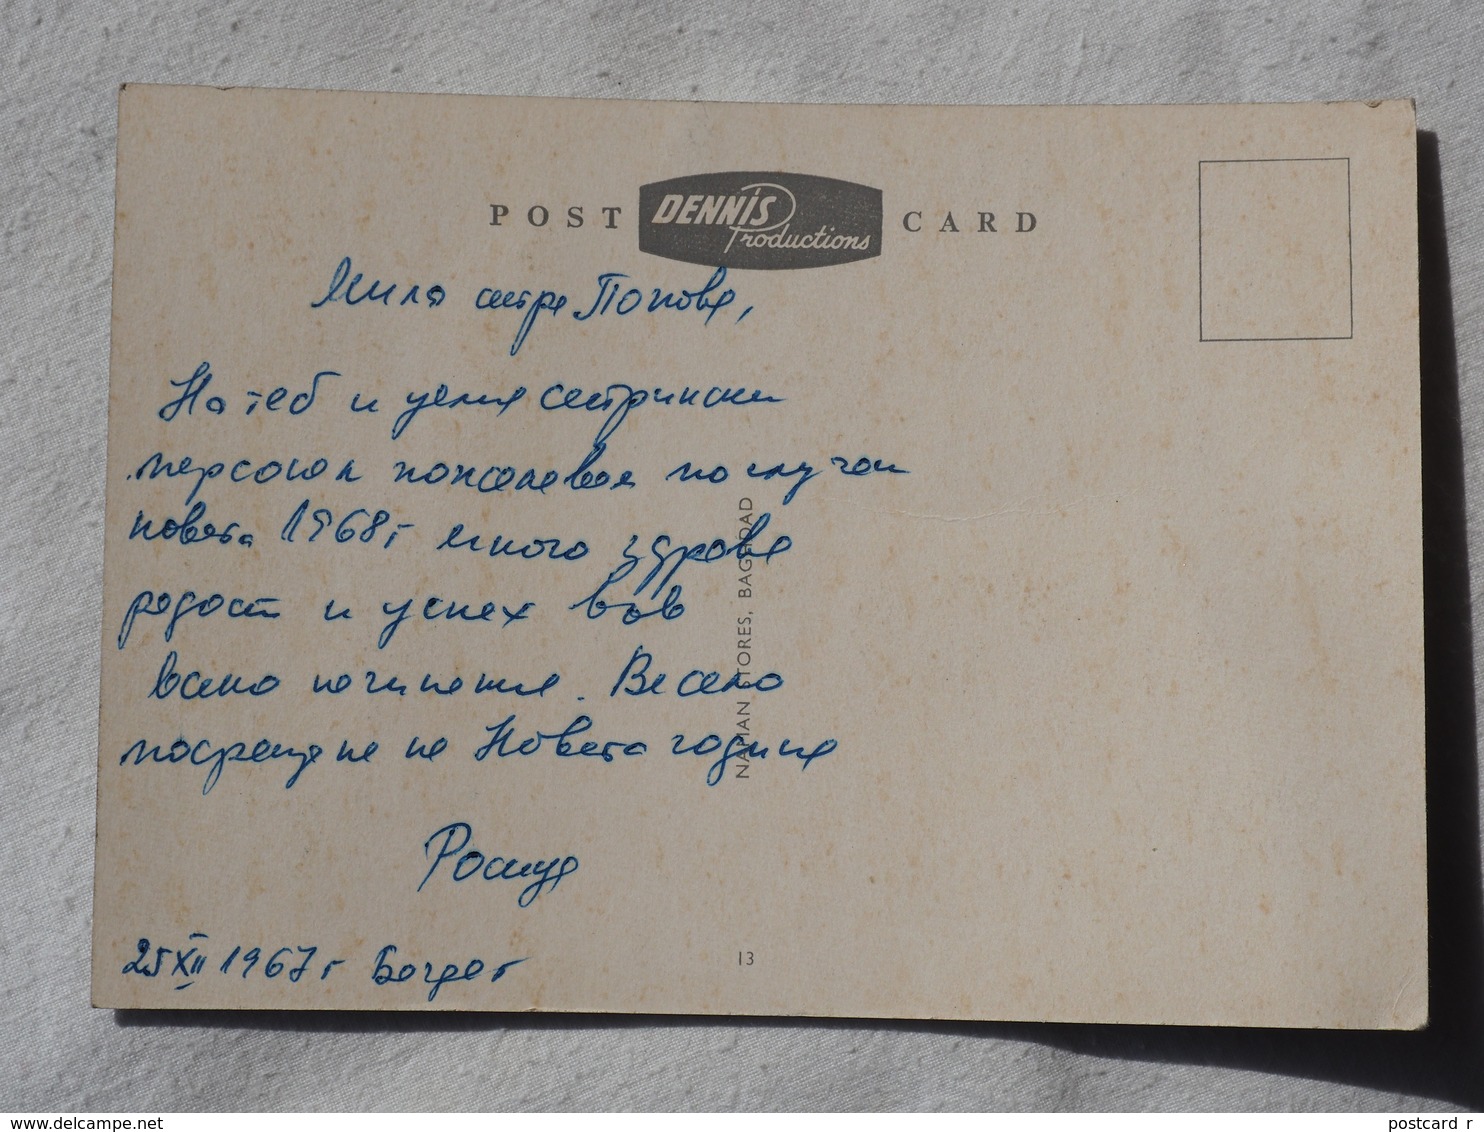 POST DENNIS Productions CARD
Мила сестра Попова,
На теб и целия сестрински
персонал пожелавам по случай
новата 1968г много здраве
радост и успех във
всяко начинание. Весело
посрещане на Новата година
25 XII 1967г Багдат
NAMAN STORES, BAGHDAD
13
delcampe.net
postcard_r